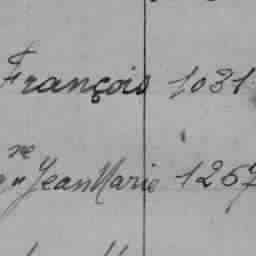 François 1031
Jean Marie 1267